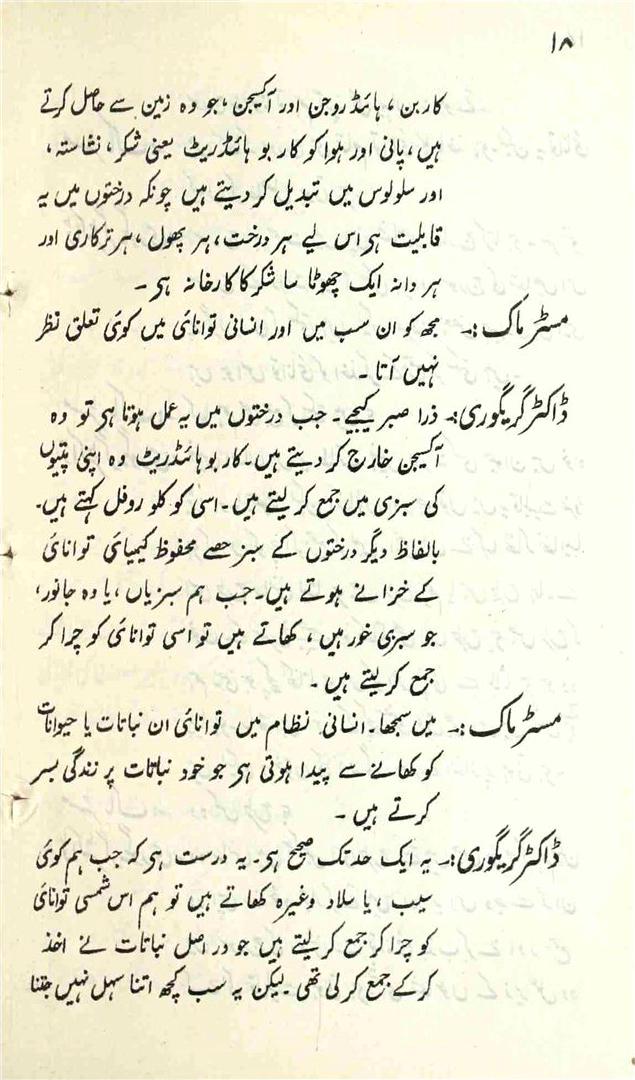 ۱۸
کاربن، ہائڈروجن اور آکسیجن، جو وہ زمین سے حاصل کرتے
ہیں، پانی اور ہوا کو کاربوہائڈریٹ یعنی شکر، نشاستہ،
اور سلولوس میں تبدیل کر دیتے ہیں چونکہ درختوں میں یہ
قابلیت ہی اس لیے ہر درخت، ہر پھول، ہر ترکاری اور
ہر دانہ ایک چھوٹا سا شکر کا کارخانہ ہی ۔
مسٹر ماک :۔ مجھ کو ان سب میں اور انسانی توانائی میں کوئی تعلق نظر
نہیں آتا ۔
ڈاکٹر گریگوری:۔ ذرا صبر کیجیے۔ جب درختوں میں یہ عمل ہوتا ہی تو وہ
آکسیجن خارج کر دیتے ہیں۔ کاربوہائڈریٹ وہ اپنی پتیوں
کی سبزی میں جمع کر لیتے ہیں۔ اسی کو کلوروفل کہتے ہیں۔
بالفاظ دیگر درختوں کے سبز حصے محفوظ کیمیائی توانائی
کے خزانے ہوتے ہیں۔ جب ہم سبزیاں، یا وہ جانور،
جو سبزی خور ہیں، کھاتے ہیں تو اسی توانائی کو چرا کر
جمع کر لیتے ہیں ۔
مسٹر ماک :۔ میں سمجھا۔ انسانی نظام میں توانائی ان نباتات یا حیوانات
کو کھانے سے پیدا ہوتی ہی جو خود نباتات پر زندگی بسر
کرتے ہیں ۔
ڈاکٹر گریگوری:۔ یہ ایک حد تک صحیح ہی۔ یہ درست ہی کہ جب ہم کوئی
سیب، یا سلاد وغیرہ کھاتے ہیں تو ہم اس شمسی توانائی
کو چرا کر جمع کر لیتے ہیں جو در اصل نباتات نے اخذ
کرکے جمع کر لی تھی۔ لیکن یہ سب کچھ اتنا سہل نہیں جتنا